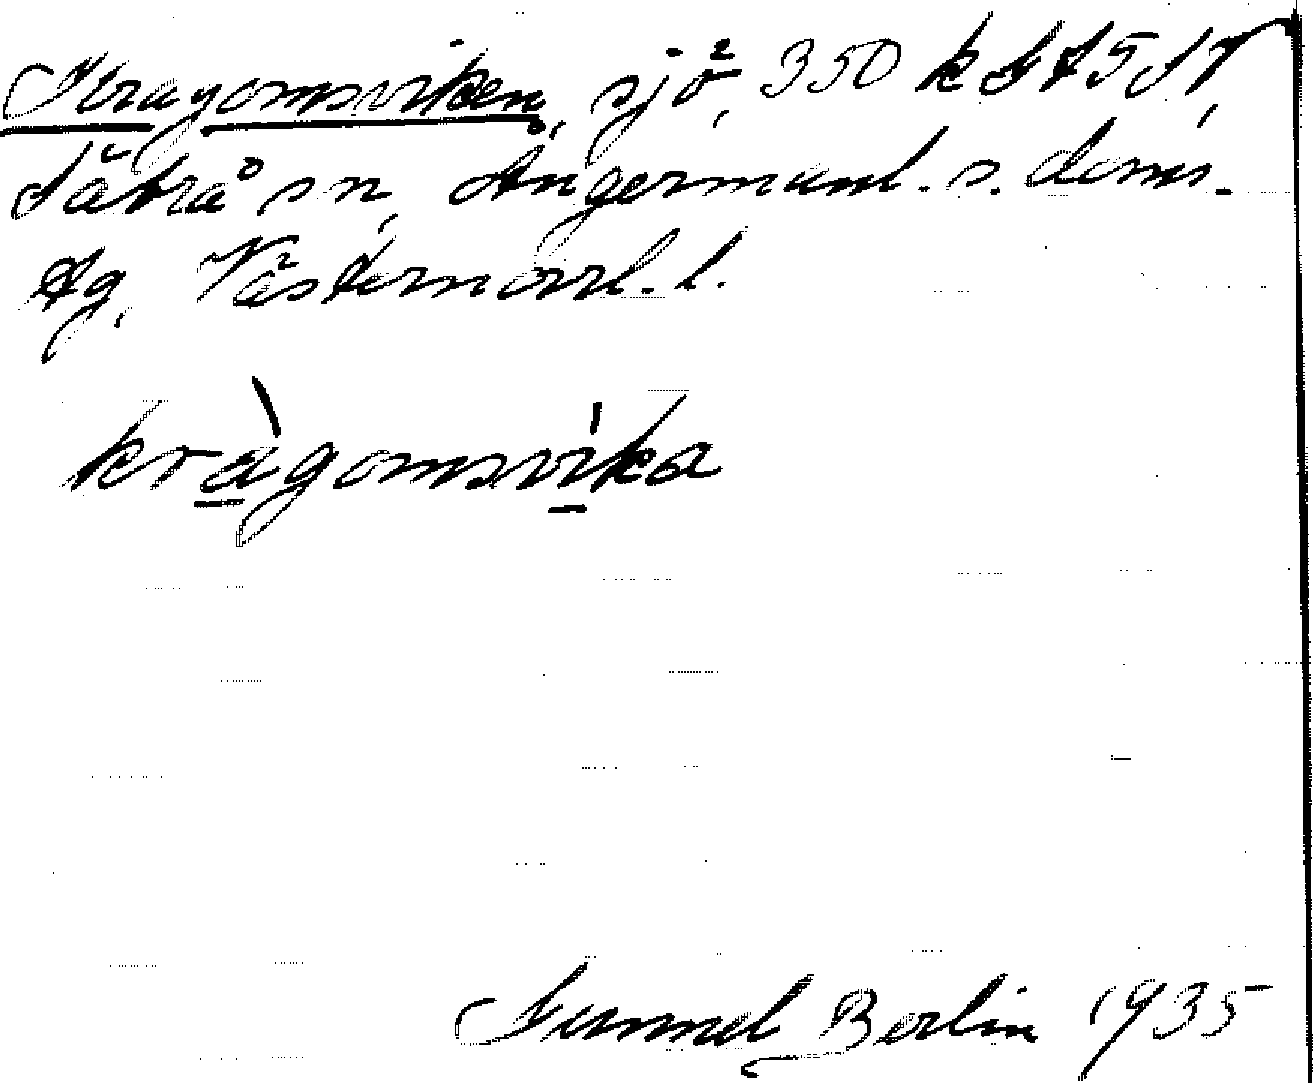 Kragomsviken, sjö, 350 k
Säbrå sn, Ångermanl. s. doms.
Ag, Västernorrl. l.
kràgomsvika
Gunnel Berlin 1935